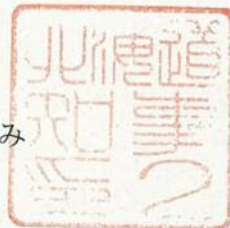 み
北海道
知事
之印